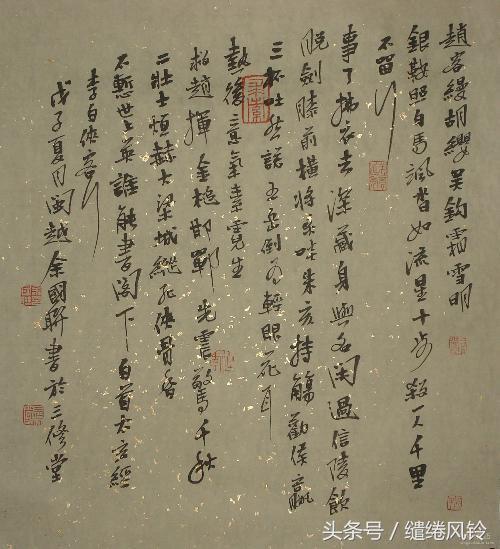 趙客縵胡纓吳鈎霜雪明
銀鞍照白馬颯沓如流星十步殺一人千里
不留行
事了拂衣去深藏身與名閑過信陵飲
脫劍膝前橫將炙啖朱亥持觴勸侯嬴
三杯吐然諾五岳倒為輕眼花耳
熱後意氣素霓生
救趙揮金槌邯鄲先震驚千秋
二壯士烜赫大梁城縱死俠骨香
不慚世上英誰能書閣下白首太玄經
李白俠客行
戊子夏月閩越余國聯書於三修堂
头条号 / 缱绻风铃